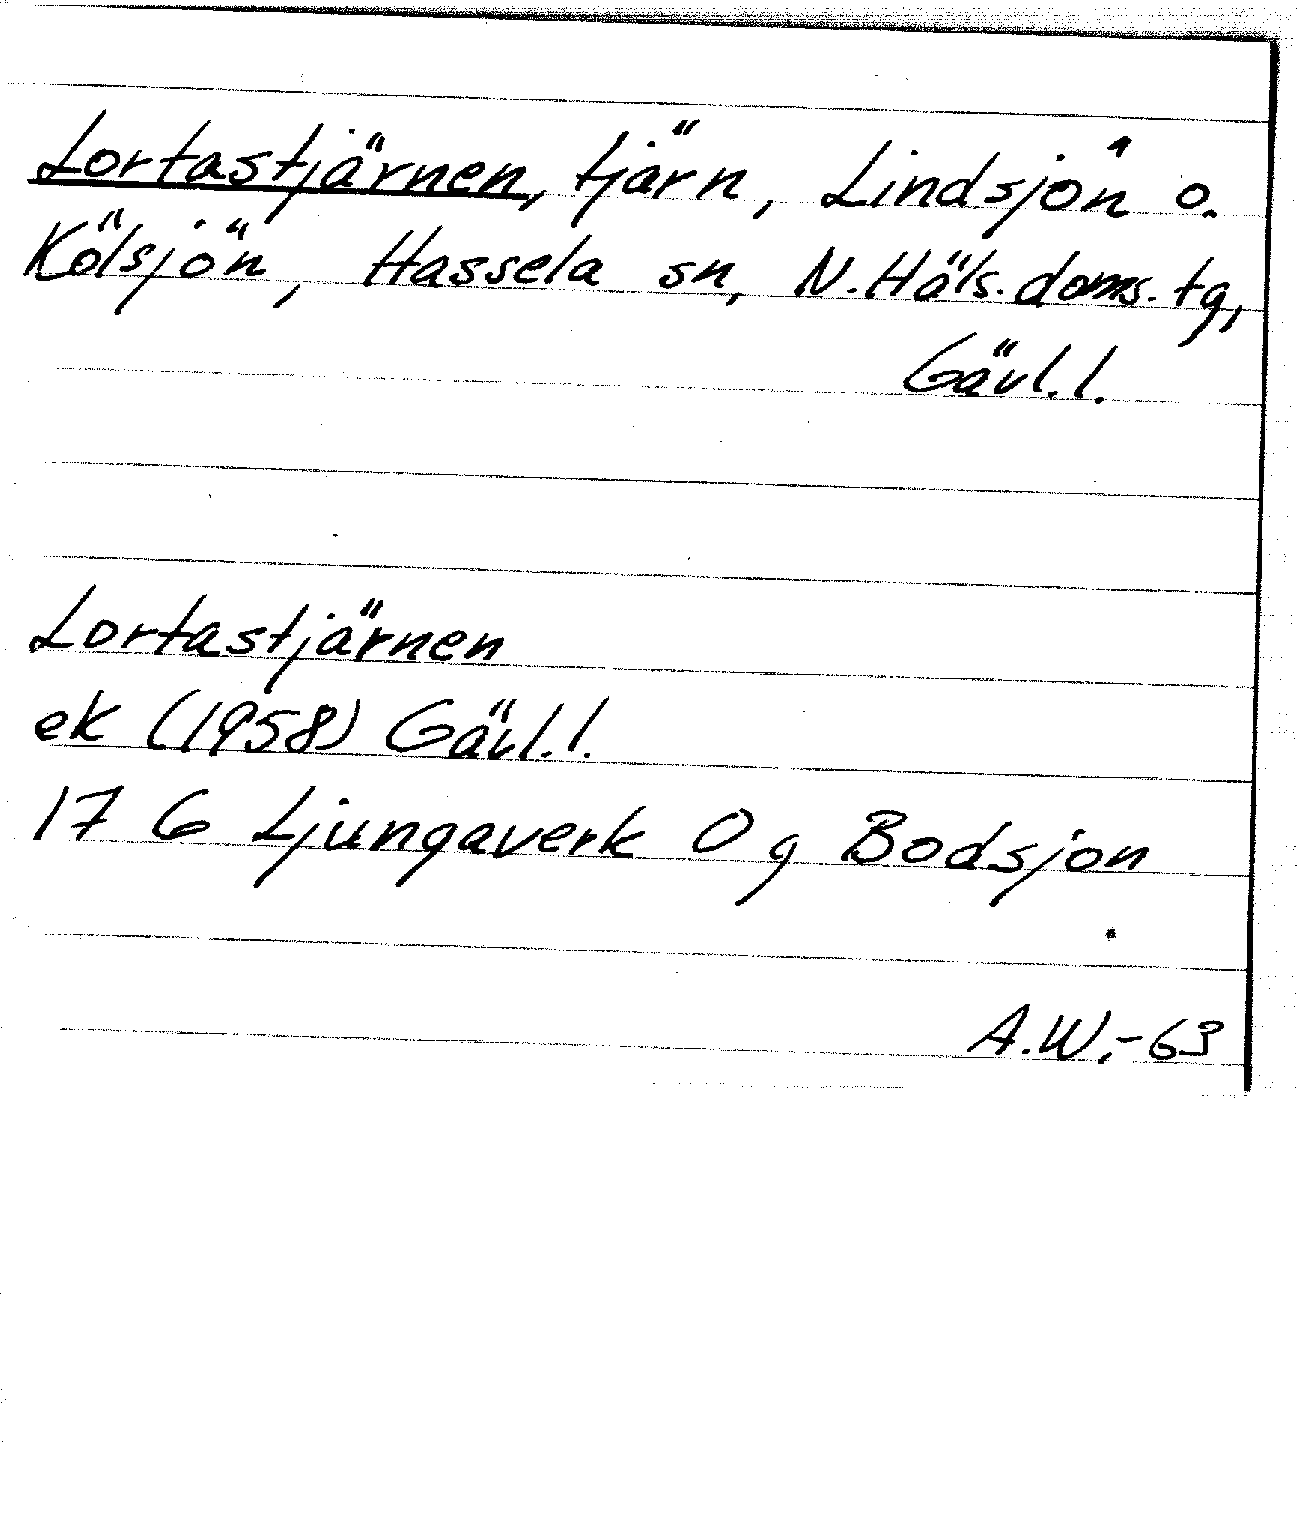 Lortastjärnen, tjärn, Lindsjön o.
Kölsjön, Hassela sn, N.Häls.doms.tg,
Gävl.l.
Lortastjärnen
ek (1958) Gävl.l.
17 G Ljungaverk 0 g Bodsjon
A.W.-63